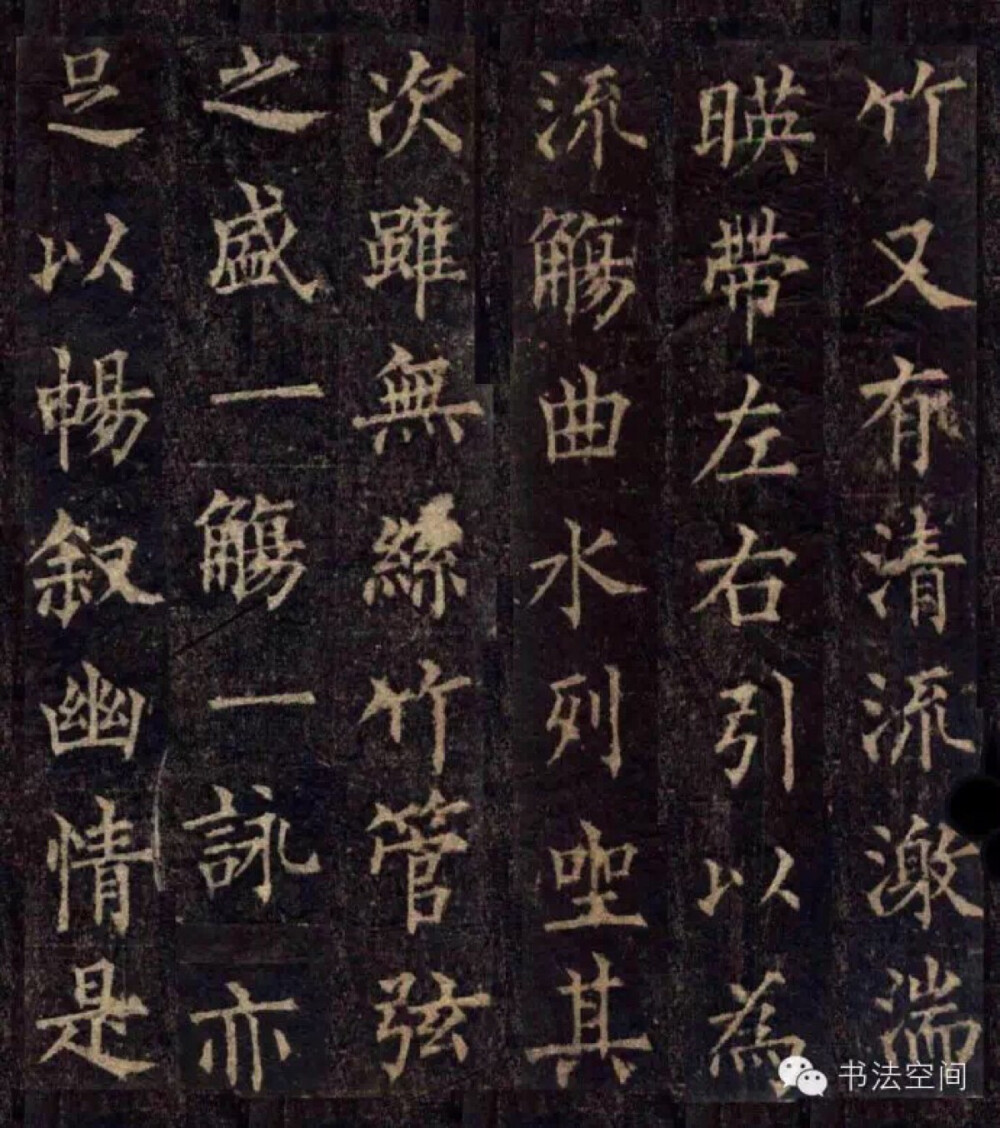 竹又有清流激湍
暎帶左右引以為
流觴曲水列坐其
次雖無絲竹管弦
之盛一觴一詠亦
足以暢叙幽情是
书法空间